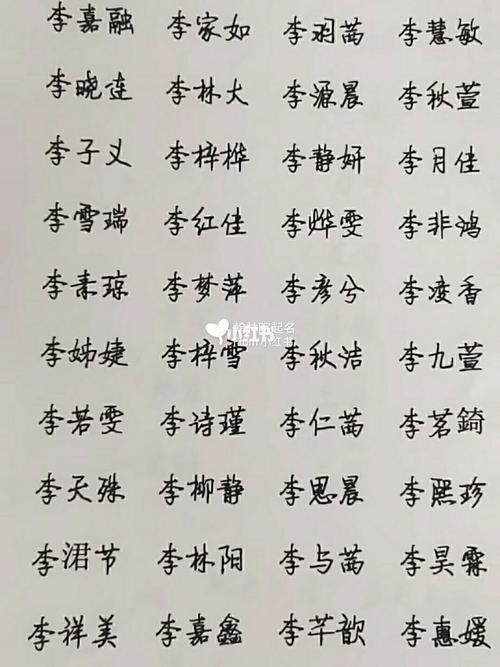 李嘉融 李家如 李羽茜 李慧敏
李晓连 李林大 李源晨 李秋萱
李子义 李梓桦 李静妍 李月佳
李雪瑞 李红佳 李烨雯 李非鸿
李素琼 李梦萍 李彦兮 李凌香
小红书
李姊婕 李梓雪 李秋洁 李九萱
李若雯 李诗瑾 李仁茜 李茗錡
李天殊 李柳静 李思晨 李熙珍
李涒节 李林阳 李与茜 李昊霖
李祥美 李嘉鑫 李芊歆 李惠媛